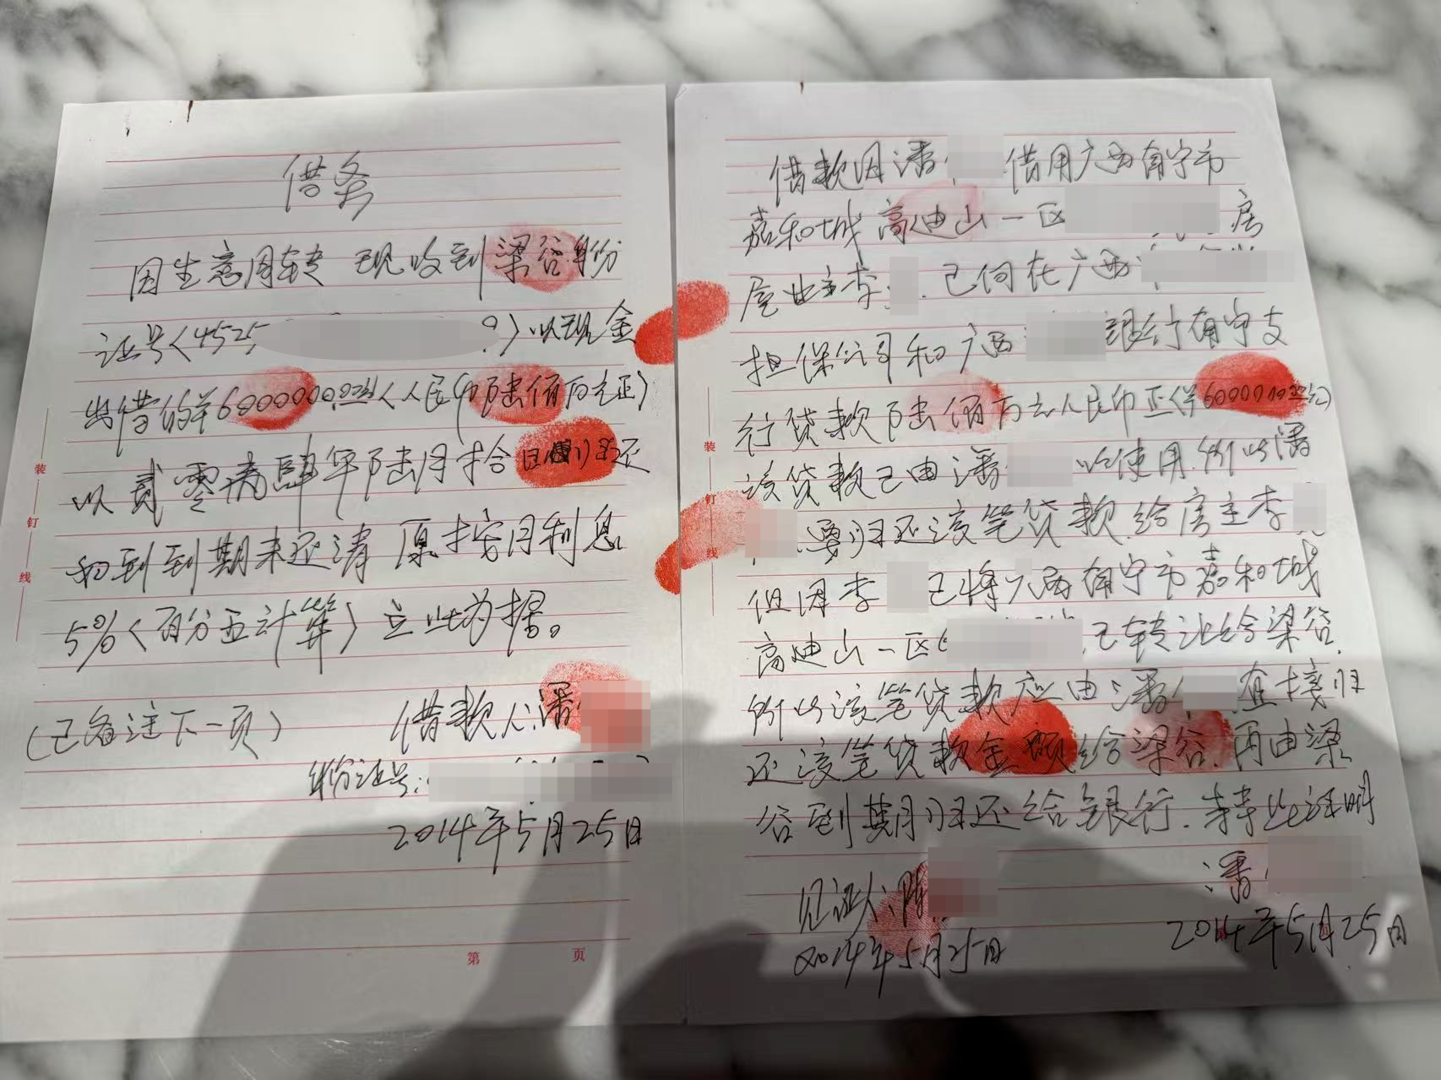 借条
因生意周转 现收到梁谷身份
证号〈4525 9〉以现金
出借的￥6000000.00〈人民币陆佰万元正〉
以贰零壹肆年陆月拾日 还
如到到期未还清 原按月利息
5%〈百分五计算〉立此为据。
(已备注下一页)
借款人:潘
身份证号:
2014年5月25日
装
钉
线
第 页
借款因潘 借用广西南宁市
嘉和城高迪山一区 房
屋业主李 . 已向在广西
担保公司和广西 银行南宁支
行贷款陆佰万元人民币正(￥6000000元)
该贷款已由潘 以使用.所以潘
要归还该笔贷款给房主李
但因李 已将广西南宁市嘉和城
高迪山一区 已转让给梁谷.
所以该笔贷款应由潘 直接归
还该笔贷款金额给梁谷.再由梁
谷到期归还给银行.特此证明
见证人:陈
潘
2014年5月25日
2014年5月25日
装
钉
线